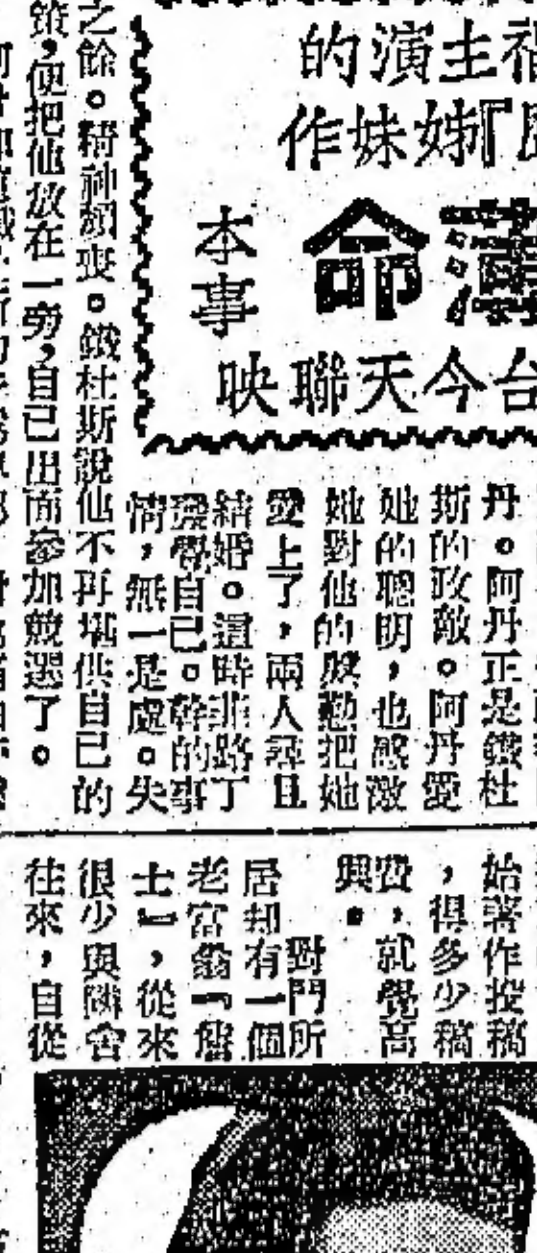 主演的
姊妹作
薄命
本事
台今天聯映
丹。阿丹正是鐵杜
斯的政敵。阿丹愛
她的聰明,也感激
她對他的殷勤把她
愛上了,兩人尋且
結婚。這時非路丁
發覺自己。幹的事
情,無一是處。失
之餘。精神頹喪。鐵杜斯說他不再堪供自己的
策,便把他放在一旁,自己出面參加競選了。
始著作投稿
,得多少稿
費,就覺高
興。
對門所
居却有一個
老富翁『詹
士』,從來
很少與隣舍
往來,自從